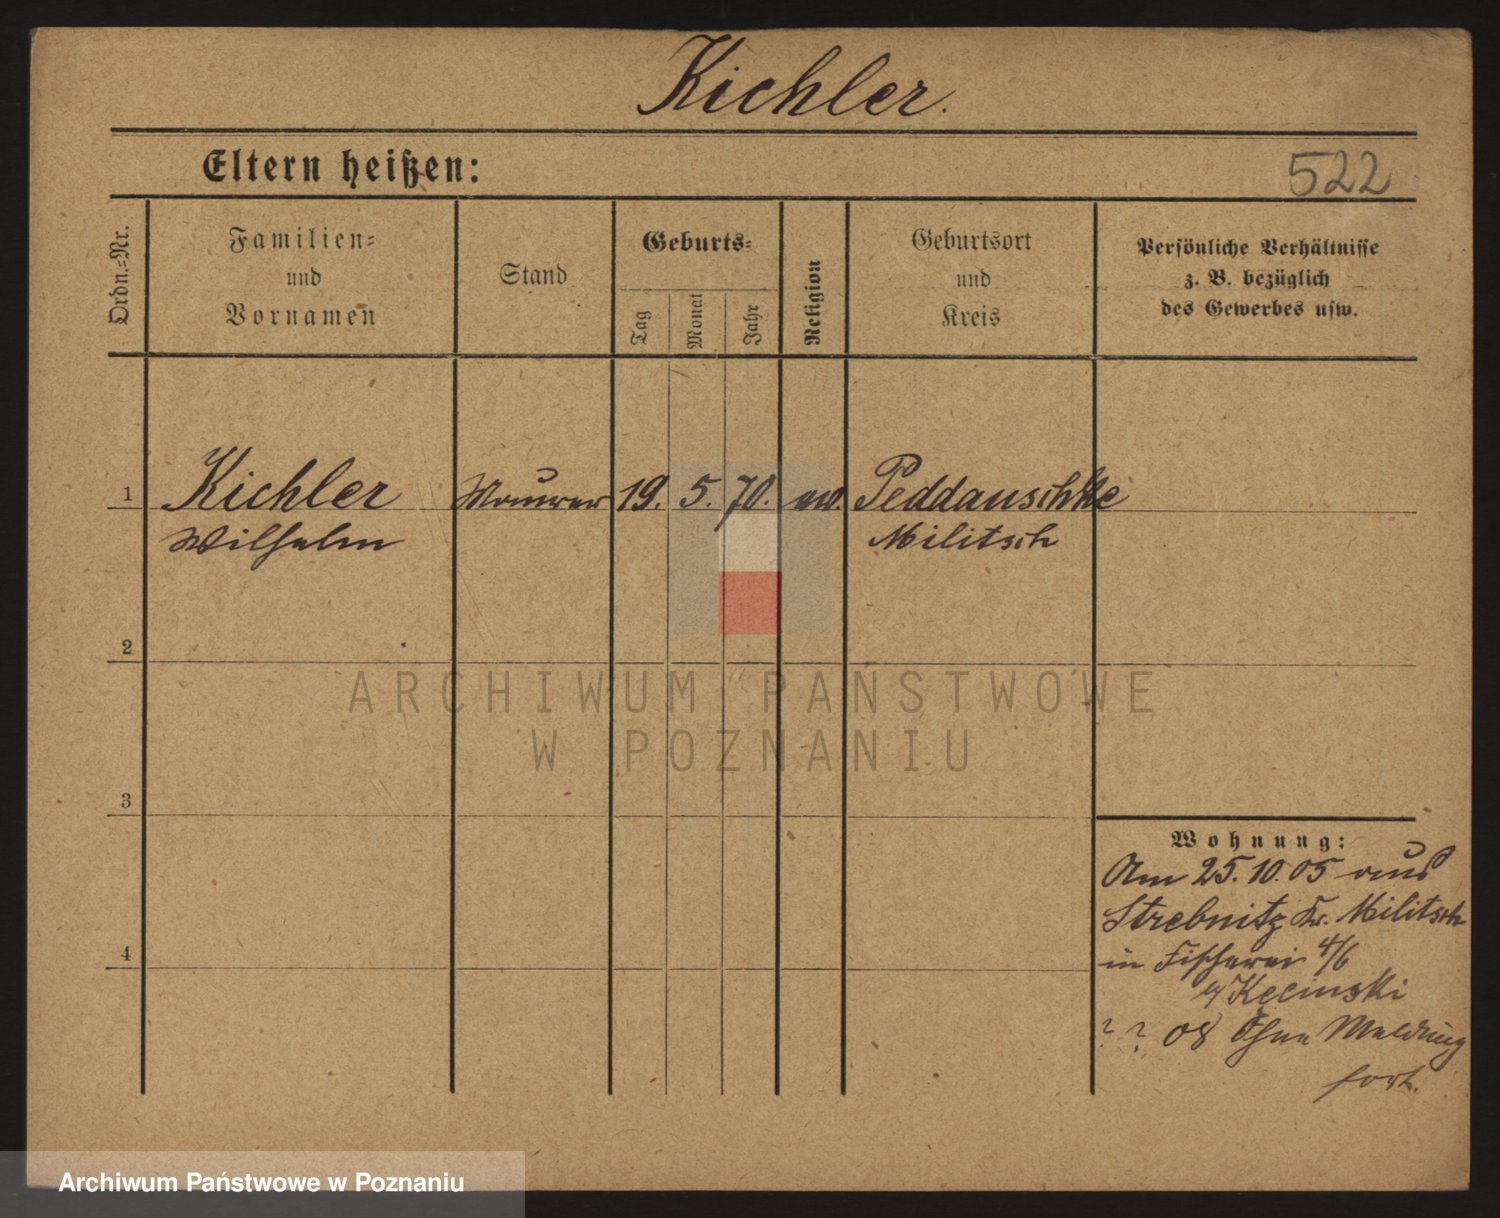 Kichler.
Eltern heißen:
522
Ordn.-Nr.
Familien-
und
Vornamen
Stand
Geburts-
Tag
Monat
Jahr
Religion
Geburtsort
und
Kreis
Persönliche Verhältnisse
z. B. bezüglich
des Gewerbes usw.
1 Kichler Maurer 19. 5. 70. ev. Peddauschke
Wilhelm Militsch
2
ARCHIWUM PAŃSTWOWE
W POZNANIU
3
Wohnung:
Am 25.10.05 aus
Strebnitz Kr. Militsch
in Fischerei 4/6
b/ Kęcinski
4
? ? 08 Ohne Meldung
fort.
Archiwum Państwowe w Poznaniu